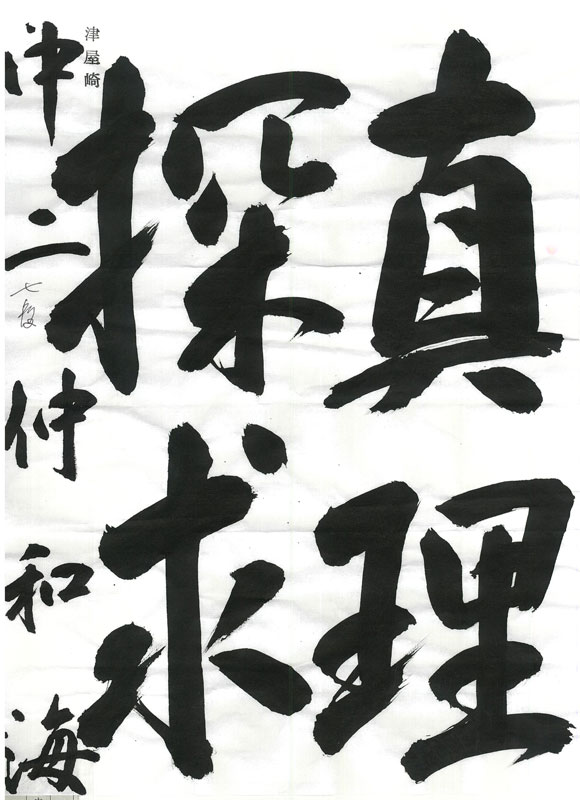 真理
探求
津屋崎
中二 仲 和 海
七段